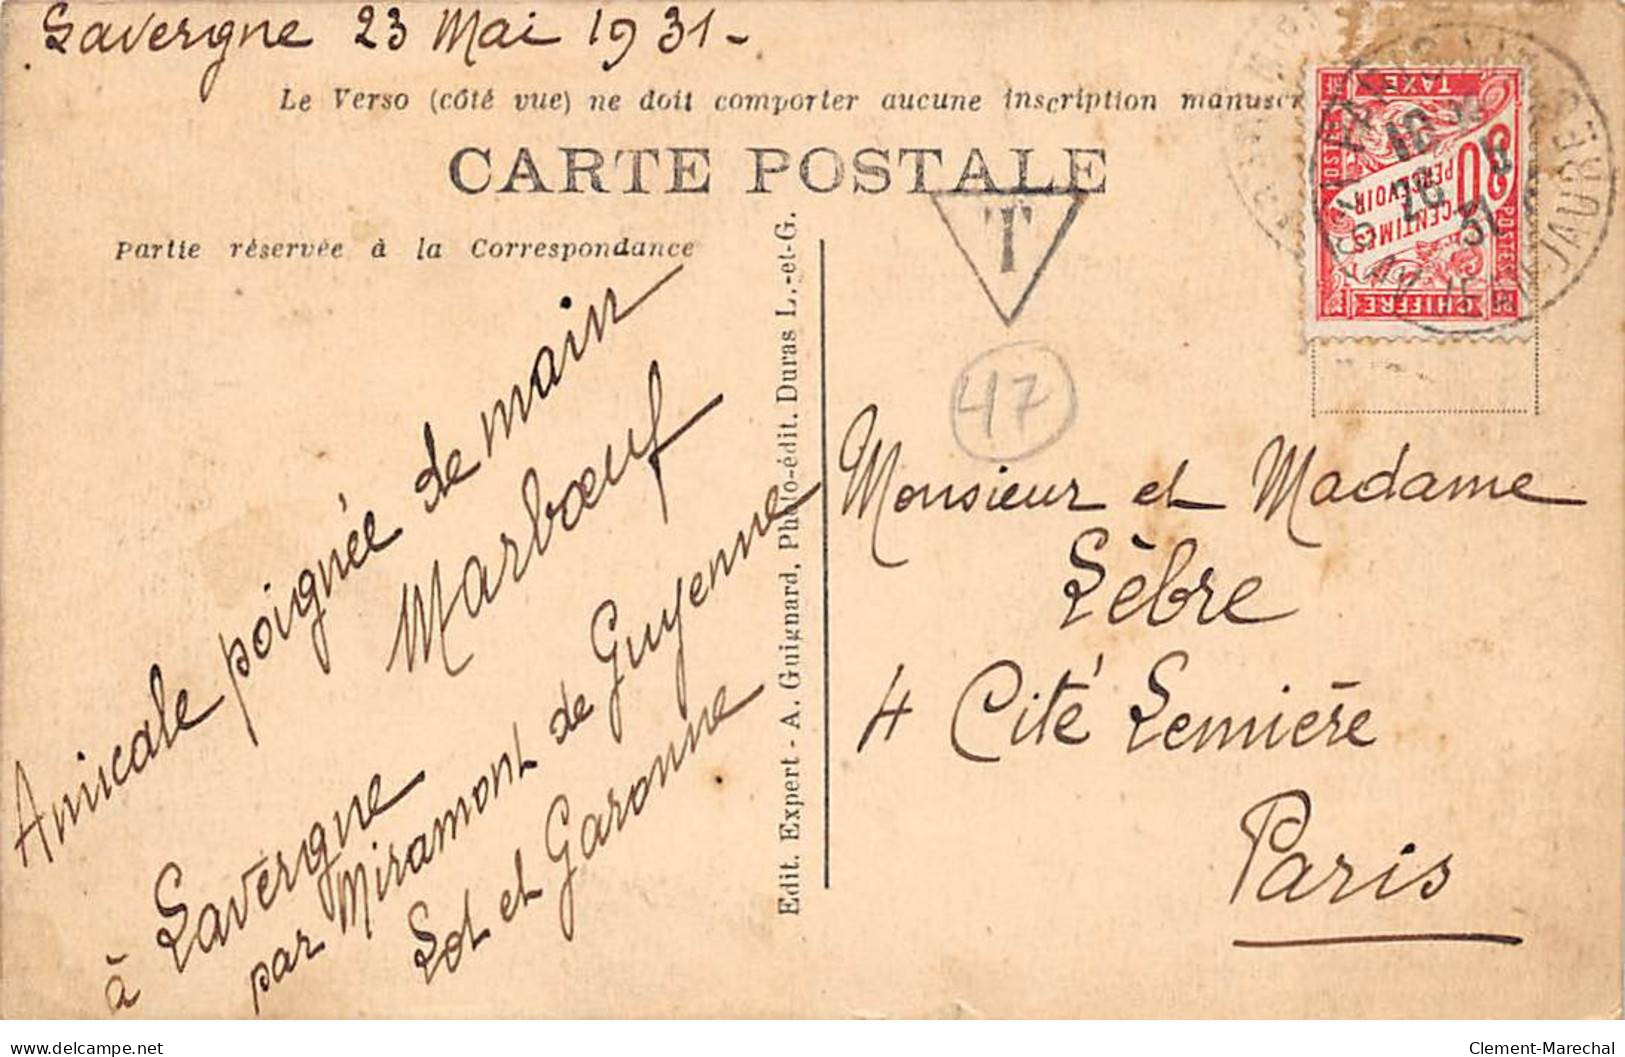 Lavergne 23 Mai 1931-
Le Verso (côté vue) ne doit comporter aucune inscription manuscr
CARTE POSTALE
Partie réservée à la Correspondance
T
47
Amicale poignée de main
Marbœuf
à Lavergne
par Miramont de Guyenne
Lot et Garonne
Edit. Expert - A. Guignard, Photo-édit. Duras L.-et-G.
TAXE
POSTES
30
CENTIMES
PERCEVOIR
CHIFFRE
PARIS
JAURÈS
26 5
31
Monsieur et Madame
Lèbre
4 Cité Lemière
Paris
delcampe.net
Clement-Marechal